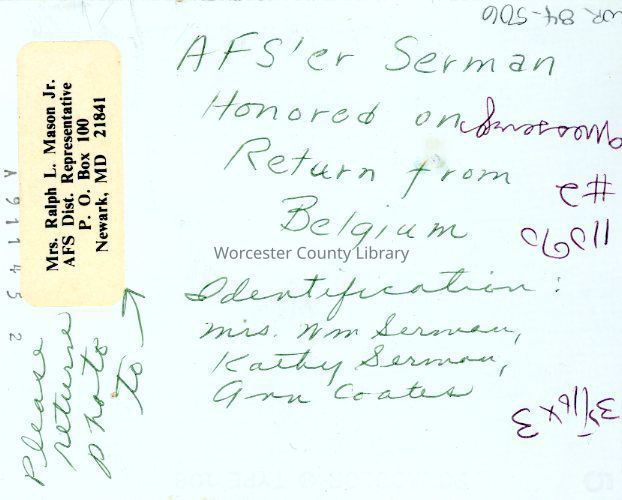 AFS'er Serman
Honored on
Return from
Belgium
Worcester County Library
Identification:
Mrs. Wm Serman,
Kathy Serman,
Ann Coates
Mrs. Ralph L. Mason Jr.
AFS Dist. Representative
P. O. Box 100
Newark, MD 21841
A 9 1 1 4 5 2
Please
return
photo
to →
WR 84-506
#2